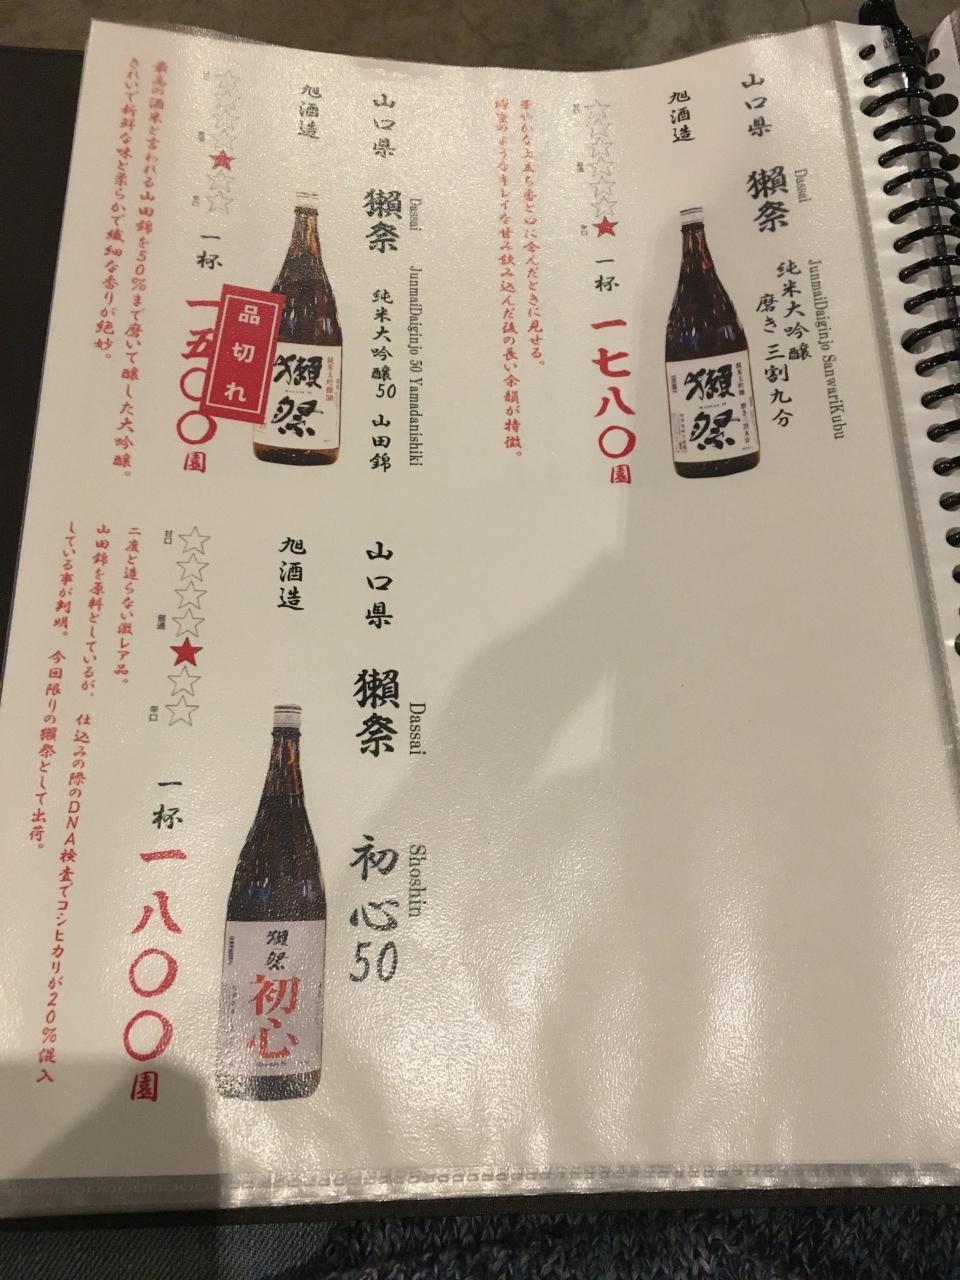 山口県
獺祭
Dassai
純米大吟醸
磨き三割九分
JunmaiDaiginjo SanwariKubu
旭酒造
獺祭
純米大吟醸
辛口
一杯
一七八〇園
華やかな上立ち香と口に含んだときに見せる。
蜂蜜のようなキレイな甘み飲み込んだ後の長い余韻が特徴。
山口県
獺祭
Dassai
純米大吟醸50 山田錦
JunmaiDaiginjo 50 Yamadanishiki
旭酒造
獺祭
純米大吟醸50
一杯
一五〇〇園
品切れ
最高の酒米と言われる山田錦を50%まで磨いて醸した大吟醸。
きれいで新鮮な味と柔らかで繊細な香りが絶妙。
山口県
獺祭
Dassai
初心50
Shoshin
旭酒造
獺祭
初心
甘口
普通
辛口
一杯
一八〇〇園
二度と造らない激レア品。
山田錦を原料としているが、仕込みの際のDNA検査でコシヒカリが20%混入
している事が判明。今回限りの獺祭として出荷。